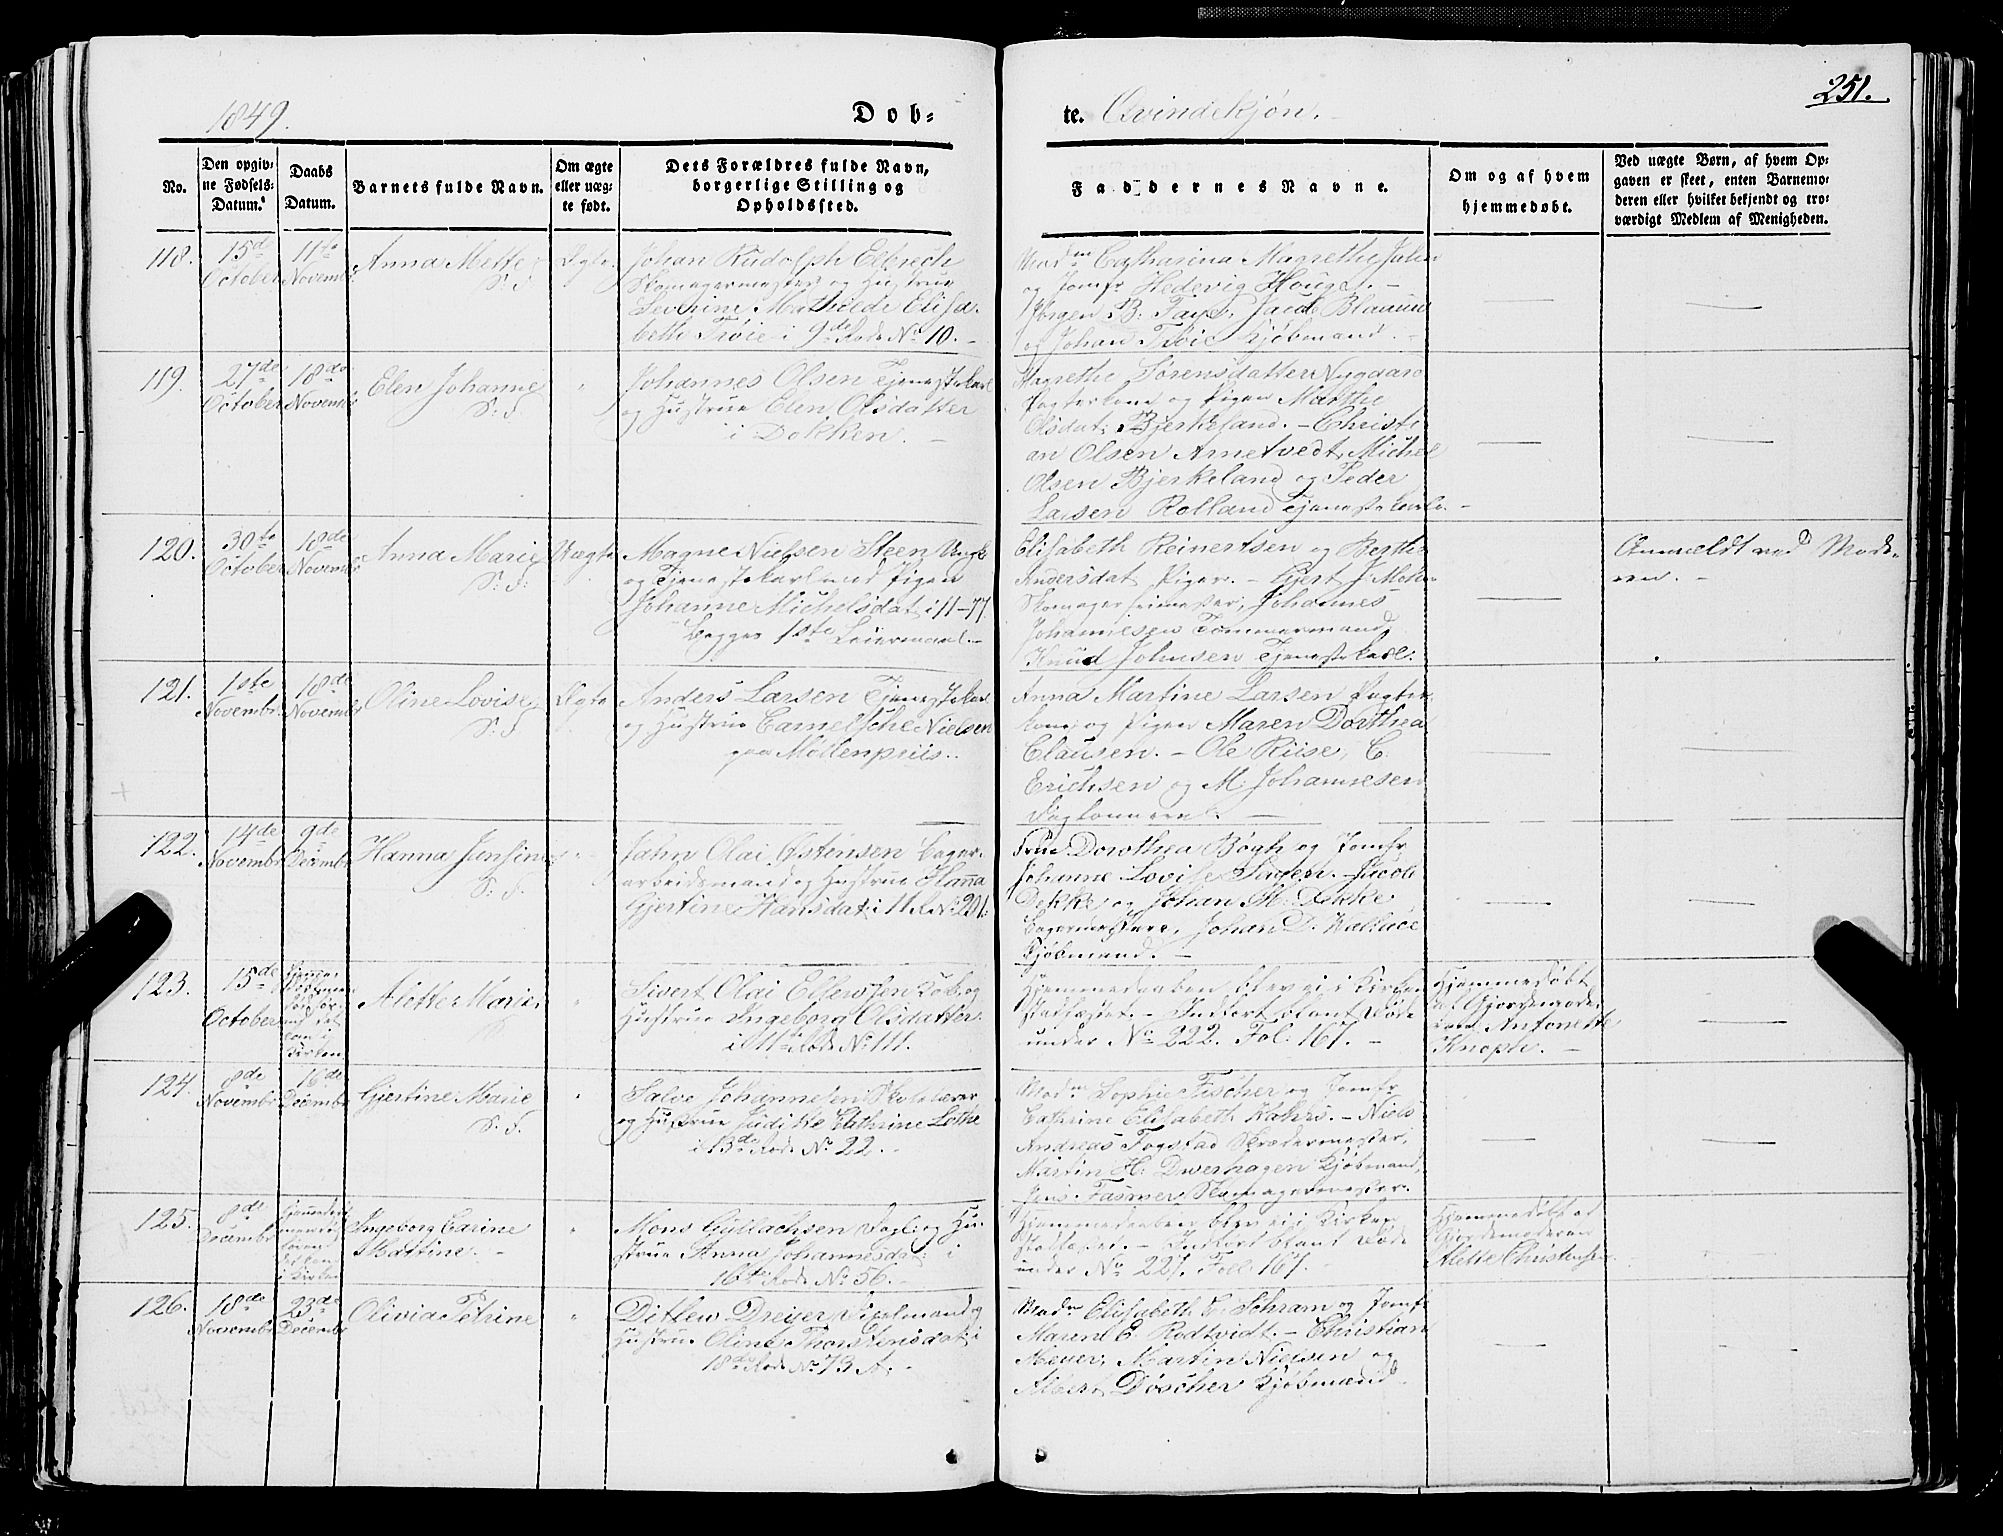 1849.
Dob-
te. Qvindekjøn.
251.
No.
Den opgiv-
ne Fødsels-
Datum.
Daabs
Datum.
Barnets fulde Navn.
Om ægte
eller uæg-
te født.
Dets Forældres fulde Navn,
borgerlige Stilling og
Opholdssted.
Faddernes Navne.
Om og af hvem
hjemmedøbt.
Ved uægte Børn, af hvem Op-
gaven er skeet, enten Barnemo-
deren eller hvilket bekjendt og tro-
værdigt Medlem af Menigheden.
118.
15de
October
11te
Novembr
Anna Mette
S. S.
Ægte
Johan Rudolph Ellerech
Skomagermester og Hustrue
Severine Mathilde Elisa-
beth Trøie i 9de Rode No 10.
Madm Catharina Magrethe Jahn
og Jomfr Hedevig Houge. -
Jørgen B. Faye, Jacob Blauuw
og Johan Trøie Kjøbmænd.
119.
27de
October
18de
Novembr
Elen Johanne
S. S.
"
Johannes Olsen Tjenestekarl
og Hustrue Elen Olsdatter
i Dokken. -
Magrethe Sørensdatter Nygaard
Pagterkone og Pigen Marthe
Olsdat: Bjerkeland. - Christi-
an Olsen Arnetvedt, Michel
Olsen Bjerkeland og Peder
Larsen Rolland Tjenestekarle. -
120.
30te
October
18de
Novembr
Anna Marie
S. S.
Uægte
Magne Nielsen Steen Ungk.
og Tjenestekarl med Pigen
Johanne Michelsdat, i 11-77
Begges 1ste Leiermaal. -
Elisabeth Reinertsen og Berthe
Andersdat Piger. - Gjert J. Mohn
Skomagermester, Johannes
Johannesen Tømmermand,
Knud Johnsen Tjenestekarl.
Anmeldt ved Mode-
ren. -
121.
1ste
Novembr
18de
Novembr
Oline Lovise
S. S.
Ægte
Anders Larsen Tjenestekarl
og Hustrue Carnelsche Nielsen
paa Møllenpriis..
Anna Martine Larsen Pagter-
kone og Pigen Maren Dorthea
Clausen. - Ole Riise, C.
Erichsen og M. Johannesen
Daglønnere. -
122.
14de
Novembr
9de
Decembr
Hanna Jensine
S. S.
"
Jahn Olai Østensen Bager-
arbeidsmand og Hustrue Hanna
Gjertine Hansdat, i 11 R. No 201.
Frue Dorothea Bøgh og Jomfr
Johanne Lovise Sinsen. - Jacob
Dekke og Johan H. Dekke
Bagermestere, Johan D. Wallace
Kjøbmand. -
123.
15de
October
Kirken
Alette Marie
"
Sivert Olai Ellewsen Kolb. og
Hustrue Ingeborg Olsdatter
i 11te Rode No 111.
Hjemmedaaben blev ei i Kirken
stadfæstet. - Indført blant Døde
under No 222. Fol. 167. -
Hjemmedøbt
af Gjordemode-
ren Antonette
Knoph. -
124.
8de
Novembr
16de
Decembr
Gjertine Marie
S. S.
"
Salve Johannesen Skolelærer
og Hustrue Judithe Cathrine Lothe
i 13de Rode No 22. -
Madm Sophie Fischer og Jomfr
Cathrine Elisabeth Kahrs. - Niels
Andreas Fogstad Skrædermester,
Martin H. Dwerhagen Kjøbmand,
Jens Fasmer Skomagermester.
125.
8de
Decembr
i Kirken
Ingeborg Carine
Martine. -
"
Mons Gullachsen Dagl. og Hu-
strue Anna Johannesdat. i
16de Rode No 56. -
Hjemmedaaben blev ei i Kirken
stadfæstet. - Indført blant Døde
under No 227. Foll. 167. -
Hjemmedøbt af
Gjordemoderen
Alette Christensen
126.
18de
Novembr
23de
Decembr
Olivia Petrine
"
Ditlew Dreyer Spillemand og
Hustrue Oline Thorstensdat, i
18de Rode No 73 A. -
Madm Elisabeth C. Schram og Jomfr
Maren E. Rodtvidt. - Christian
Meyer, Martin Nielsen og
Albert Døscher Kjøbmænd